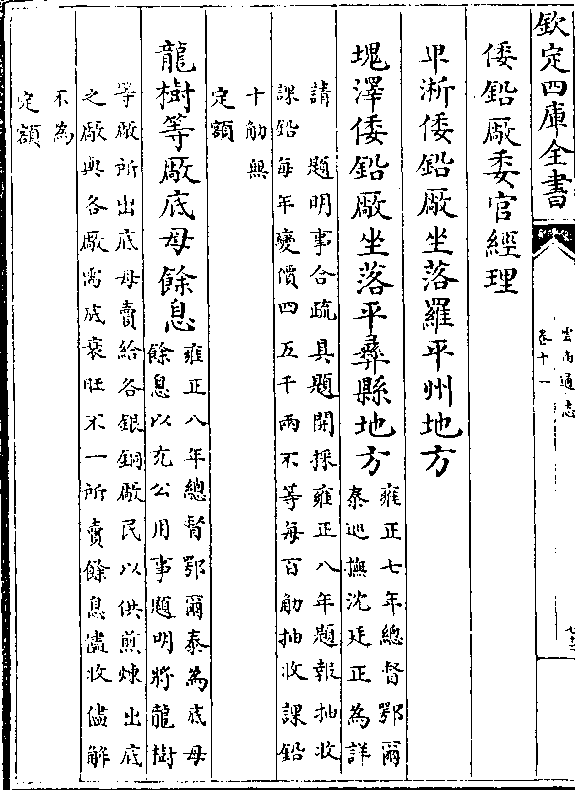 欽定四庫全書
雲南通志
卷十一
倭鉛厰委官經理
卑淅倭鉛厰坐落羅平州地方
塊澤倭鉛厰坐落平彝縣地方
雍正七年總督鄂爾
泰巡撫沈廷正為詳
請　題明事合疏具題開採雍正八年題報抽收
課鉛每年變價四五千兩不等每百觔抽收課鉛
十觔無
定額
龍樹等厰底母餘息
雍正八年總督鄂爾泰為底母
餘息以充公用事題明將龍樹
等厰所出底母賣給各銀銅厰民以供煎煉出底
之厰與各厰需底衰旺不一所賣餘息儘收儘解
不為
定額